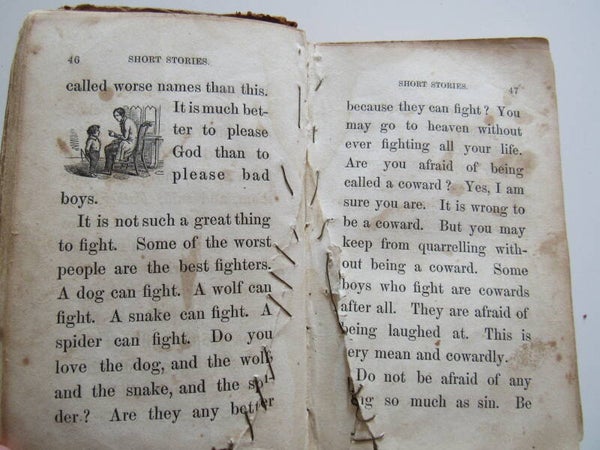 46 SHORT STORIES.
called worse names than this.
It is much bet-
ter to please
God than to
please bad
boys.
It is not such a great thing
to fight. Some of the worst
people are the best fighters.
A dog can fight. A wolf can
fight. A snake can fight. A
spider can fight. Do you
love the dog, and the wolf,
and the snake, and the spi-
der? Are they any better
SHORT STORIES. 47
because they can fight? You
may go to heaven without
ever fighting all your life.
Are you afraid of being
called a coward? Yes, I am
sure you are. It is wrong to
be a coward. But you may
keep from quarrelling with-
out being a coward. Some
boys who fight are cowards
after all. They are afraid of
being laughed at. This is
ery mean and cowardly.
Do not be afraid of any
ng so much as sin. Be